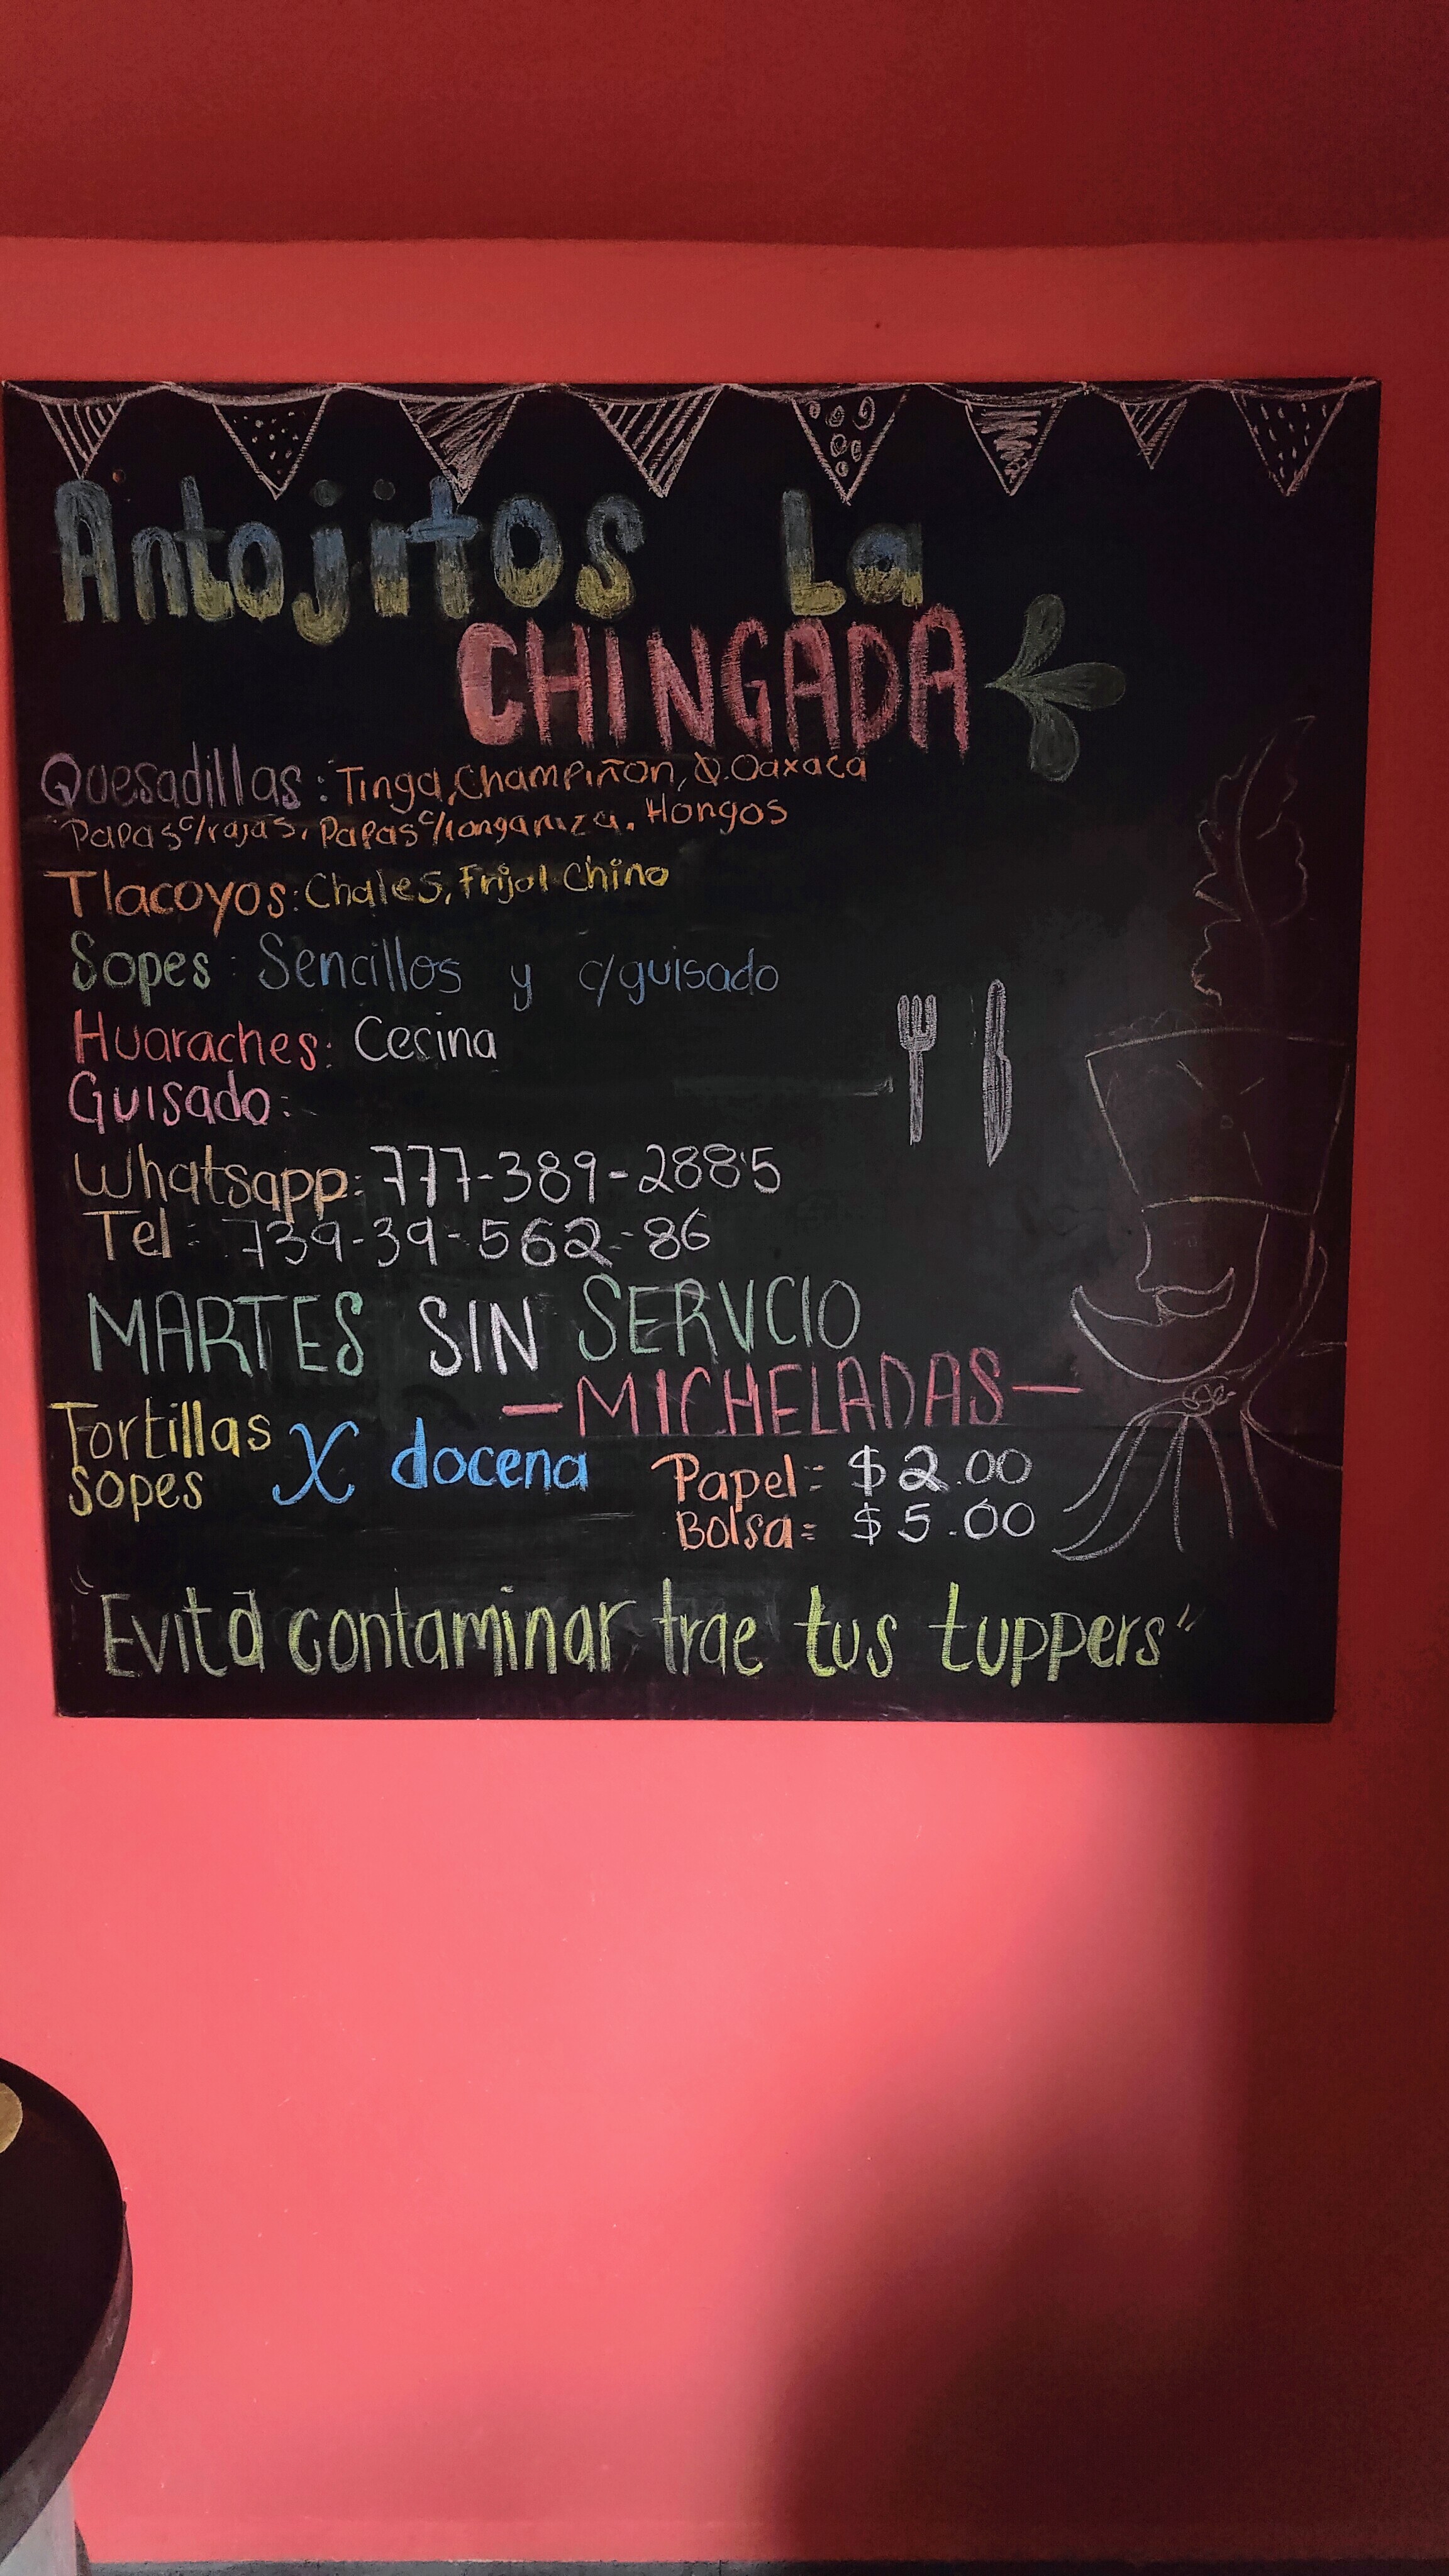 Antojitos La
CHINGADA
Quesadillas: Tinga, Champiñon, Q.Oaxaca
Papas c/rajas, Papas c/longaniza. Hongos
Tlacoyos: Chales, Frijol Chino
Sopes: Sencillos y c/guisado
Huaraches: Cecina
Guisado:
Whatsapp: 777-389-2885
Tel: 739-39-562-86
MARTES SIN SERVCIO
-MICHELADAS-
Tortillas
sopes X docena
Papel= $2.00
Bolsa= $5.00
"Evita contaminar trae tus tuppers"